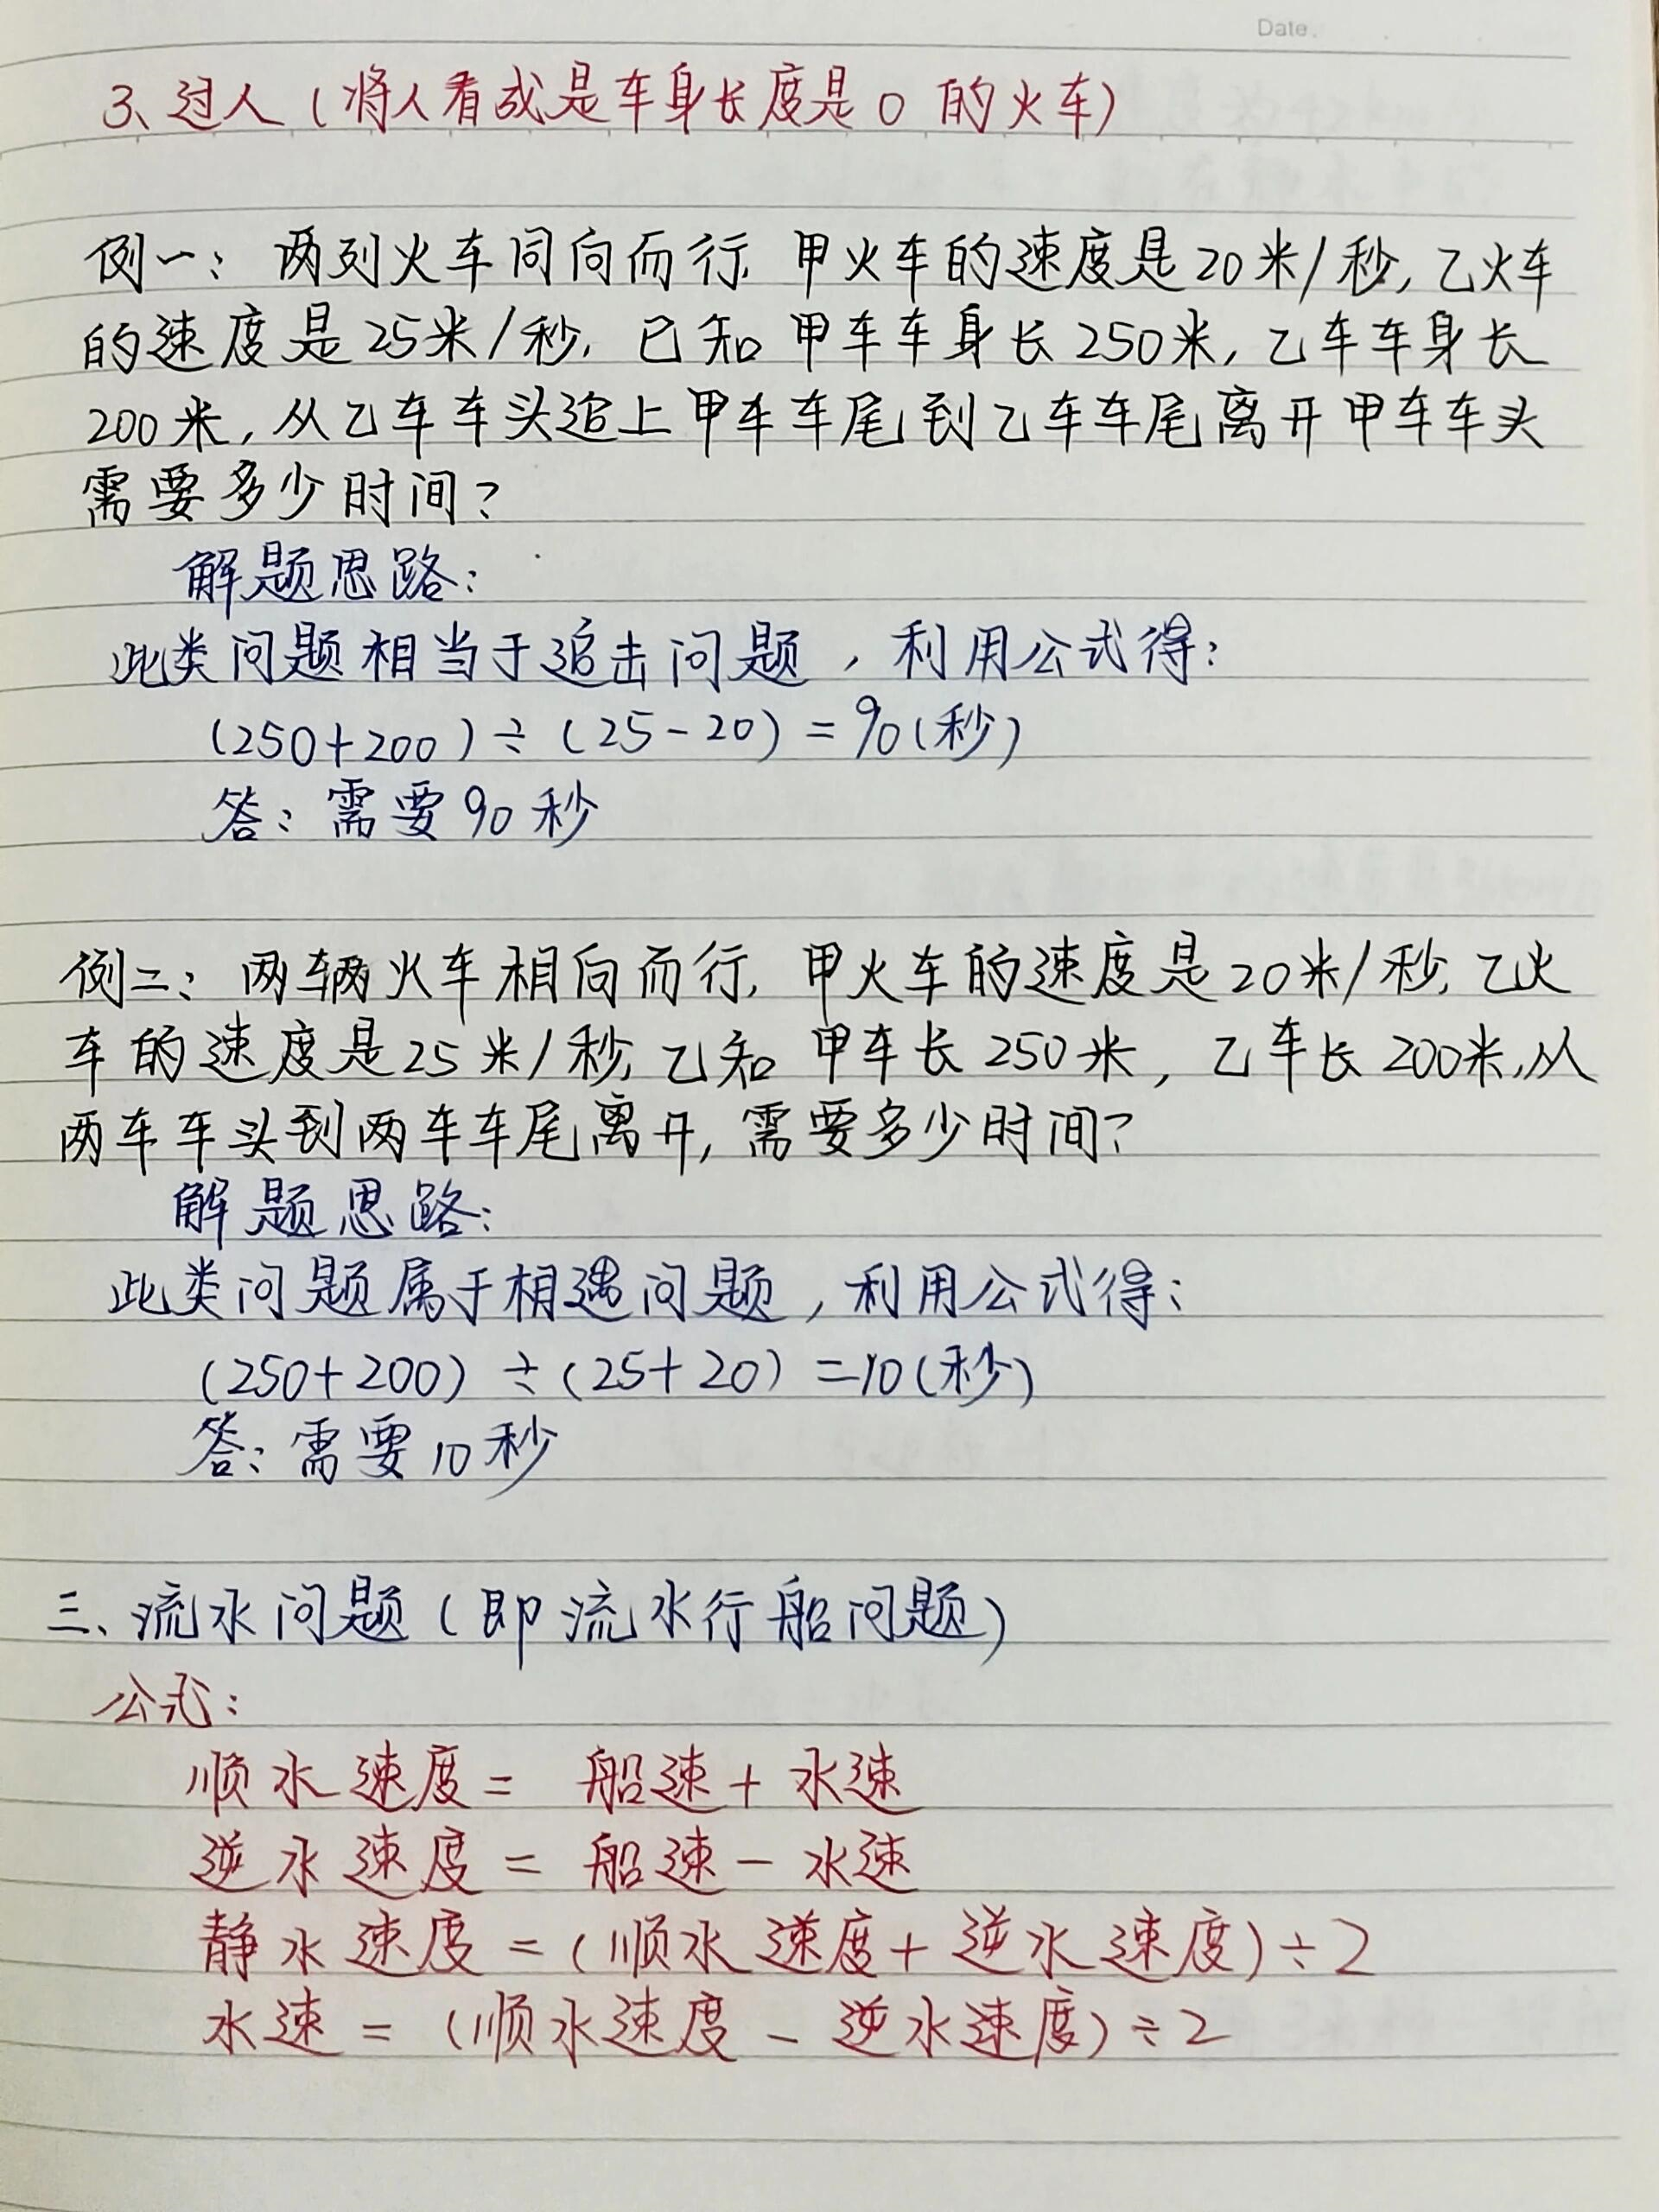 Date.
3、过人(将人看成是车身长度是0的火车)
例一: 两列火车同向而行, 甲火车的速度是20米/秒, 乙火车
的速度是25米/秒, 已知甲车车身长250米, 乙车车身长
200米, 从乙车车头追上甲车车尾到乙车车尾离开甲车车头
需要多少时间?
解题思路:
此类问题相当于追击问题, 利用公式得:
(250+200)÷(25-20)=90(秒)
答: 需要90秒
例二: 两辆火车相向而行, 甲火车的速度是20米/秒, 乙火
车的速度是25米/秒, 乙知甲车长250米, 乙车长200米, 从
两车车头到两车车尾离开, 需要多少时间?
解题思路:
此类问题属于相遇问题, 利用公式得:
(250+200)÷(25+20)=10(秒)
答: 需要10秒
三、流水问题(即流水行船问题)
公式:
顺水速度= 船速+水速
逆水速度= 船速-水速
静水速度=(顺水速度+逆水速度)÷2
水速=(顺水速度-逆水速度)÷2